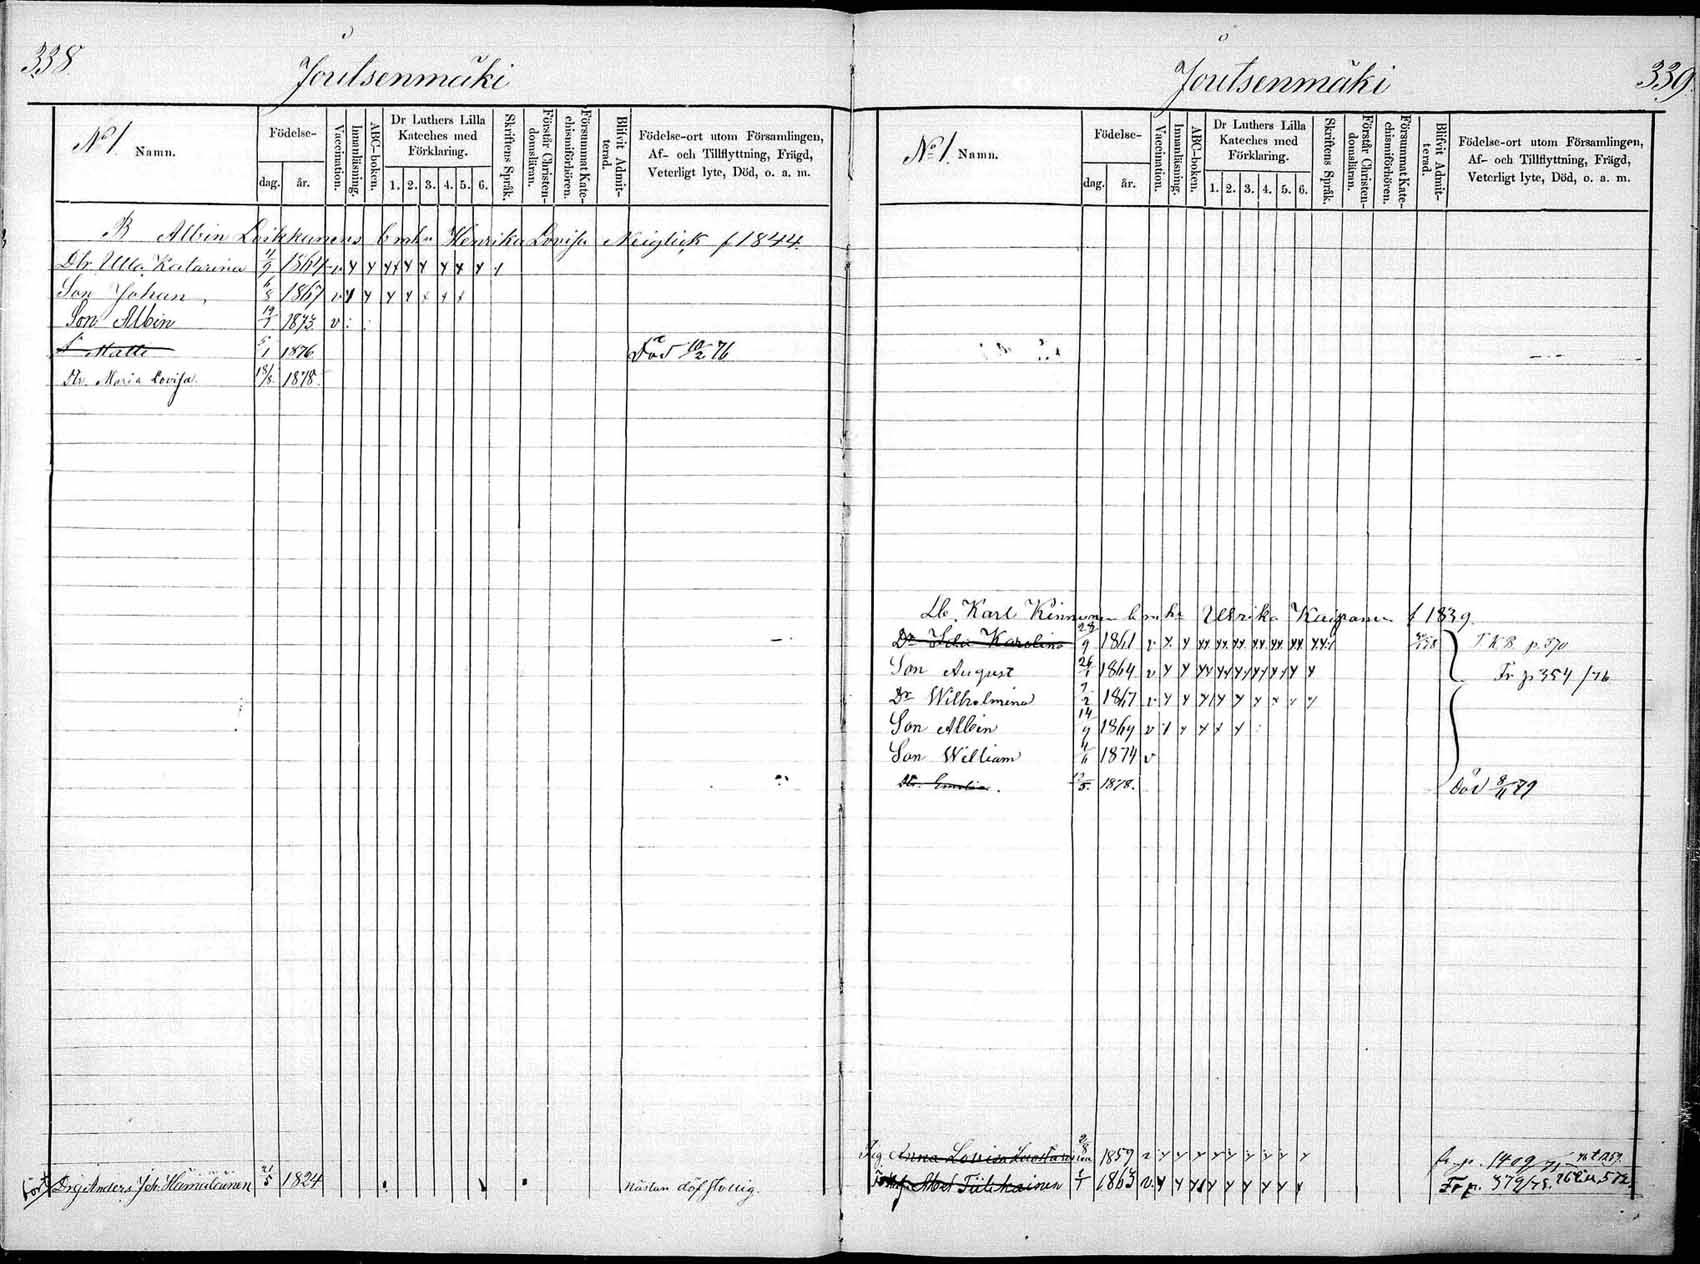 338.
Joutsenmäki
N° 1. Namn.
Födelse-
dag. år.
Vaccination.
Innanläsning.
ABC-boken.
Dr Luthers Lilla Kateches med Förklaring.
1. 2. 3. 4. 5. 6.
Skriftens Språk.
Förstår Christen-domsläran.
Försummat Kate-chismiförhören.
Blifvit Admit-terad.
Födelse-ort utom Församlingen,
Af- och Tillflyttning, Frägd,
Veterligt lyte, Död, o. a. m.
B Albin Loikkanens Enka Henrika Lovisa Neiglick f 1844.
Dtr. Ulla Katarina 9 1864 v
Son Johan, 6/8 1867 v
Son Albin 19/1 1873 v
S. Matti 5/1 1876 Död 10/2 76
Dtr. Maria Lovisa. 18/8 1878.
Drg Anders Joh. Hämäläinen 21/5 1824 nästan döf
Joutsenmäki
339.
N° 1. Namn.
Födelse-
dag. år.
Vaccination.
Innanläsning.
ABC-boken.
Dr Luthers Lilla Kateches med Förklaring.
1. 2. 3. 4. 5. 6.
Skriftens Språk.
Förstår Christen-domsläran.
Försummat Kate-chismiförhören.
Blifvit Admit-terad.
Födelse-ort utom Församlingen,
Af- och Tillflyttning, Frägd,
Veterligt lyte, Död, o. a. m.
Karl Kinnunen Ulrika f 1839.
Dr Karolina 28/9 1861 v T K B p. 370
Son August 26/1 1864 v Fr p 354 /76
Dr Wilhelmina 7/2 1867 v
Son Albin 14/9 1869 v
Son William 4/11 1874 v
Dtr. Emilia. 12/5. 1878. Död 8/11 79
Pig Anna Lovisa 2/8 1859 v fr. p. 1409/71
Abel Tiilikainen 1 1863 v. Fr p. 379/75.